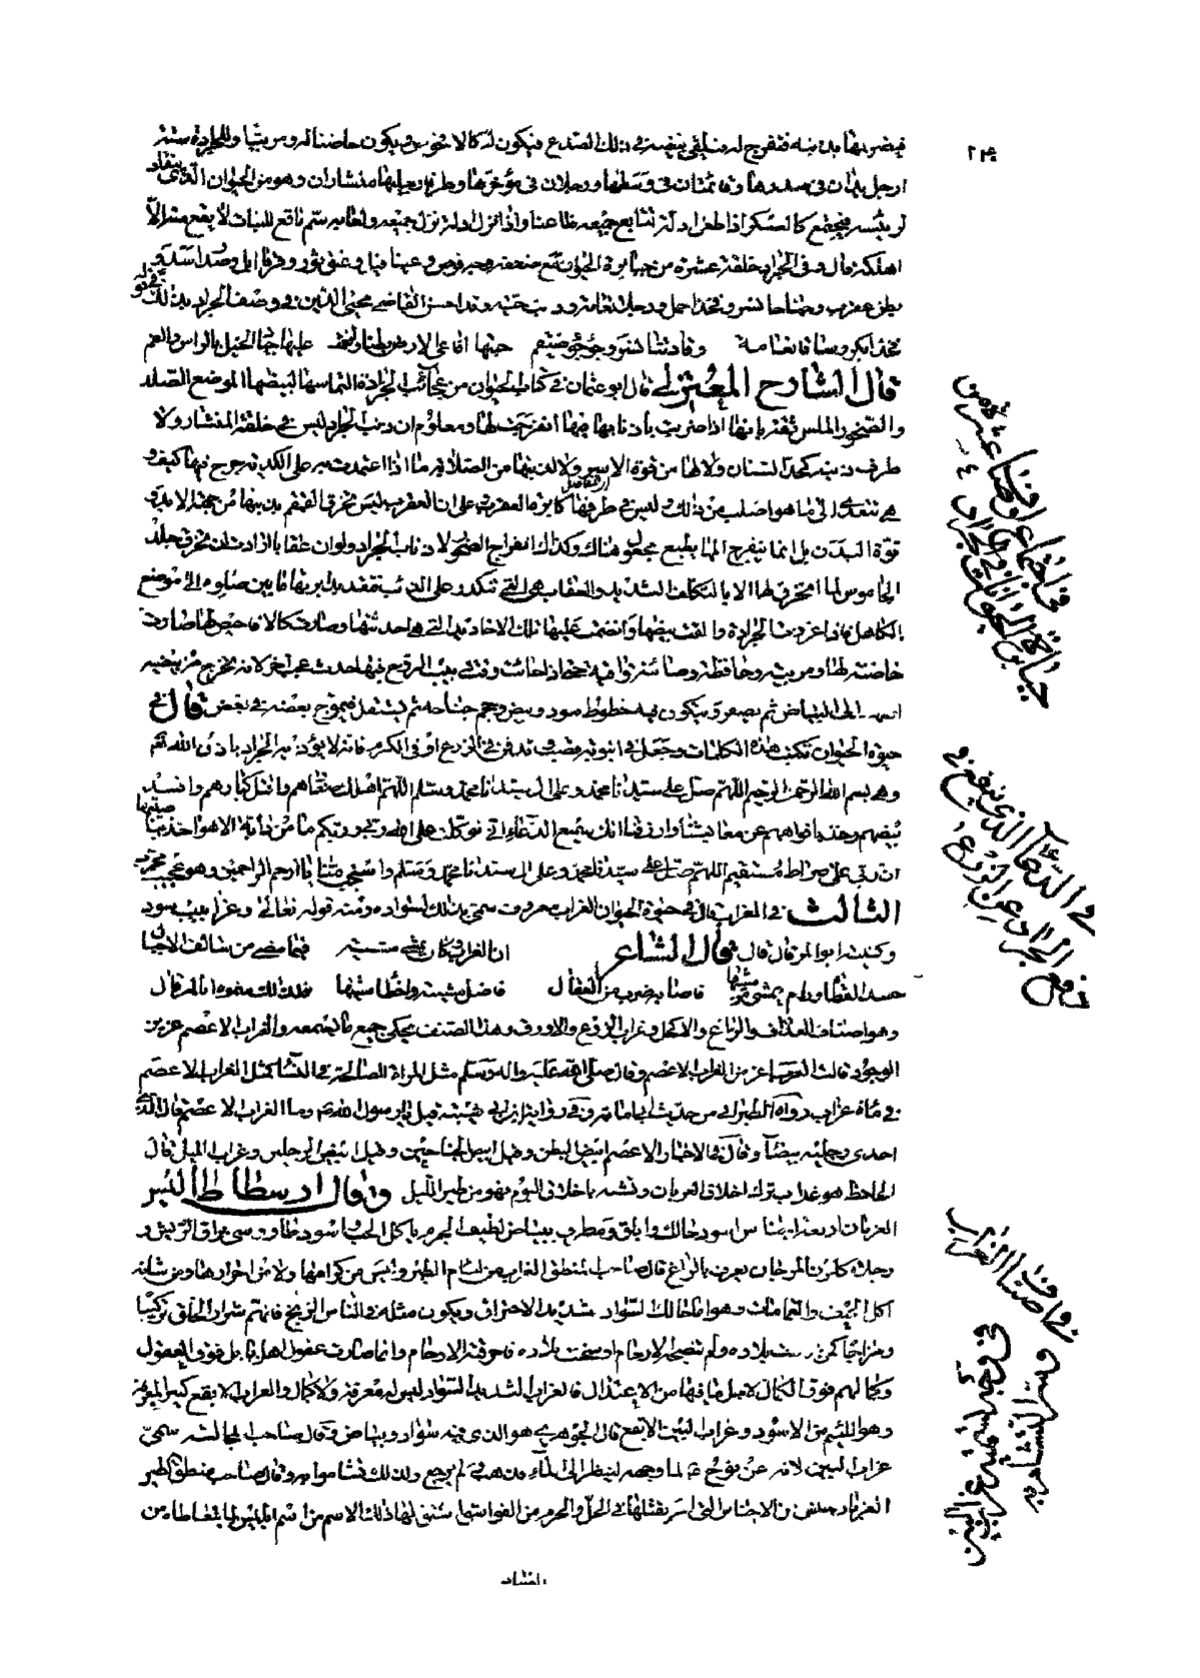 فيضربها بذنبه فتفرج له فيلقي بيضه في ذلك الصدع فيكون له كالافحوص ويكون حاضنا له ومربيا وللجرادة ستة
ارجل يدان في صدرها وقائمتان في وسطها ورجلان في مؤخرها وطرفا رجليها منشاران وهو من الحيوان الذي ينقاد
لرئيسه فيجتمع كالعسكر اذا ظعن اوله تتابع جميعه ظاعنا واذا نزل اوله نزل جميعه ولعابه سم ناقع للنبات لا يقع منه الا
اهلكه قال وفي الجراد خلقة عشرة من جبابرة الحيوان مع ضعفه وجه فرس وعينا فيل وعنق ثور وقرنا ايل وصدر اسد و
بطن عقرب وجناحا نسر وفخذا جمل ورجلا نعامة وذنب حية وقد احسن القاضي محيي الدين في وصف الجراد بذلك في قوله
فخذا بكر وساقا نعامة وقادمتا نسر وجؤجؤ ضيغم حبتها افاعي الارض بطنا وانعمت عليها جياد الخيل بالراس والفم
قال الشارح المعتزلي قال ابو عثمان في كتاب الحيوان من عجائب الجرادة التماسها لبيضها الموضع الصلد
والصخور الملس ثقة بانها اذا ضربت باذنابها فيها انفرجت لها ومعلوم ان ذنب الجراد ليس في خلقة المنشار ولا
طرف ذنبه كحد السنان ولا لها من قوة الاسر ولا لذنبها من الصلابة ما اذا اعتمدت به على الكدية جرح فيها كيف و
هي تتعدى الى ما هو اصلب من ذلك وليس في طرفها كابرة العقرب وعلى ان العقرب ليس تخرق القمقم بذنبها من جهة الايد و
قوة البدن بل انما ينفرج لها بطبع مجعول هناك وكذلك انفراج الصخور لاذناب الجراد ولو ان عقابا ارادت ان تخرق جلد
الجاموس لما انخرق لها الا بالتكلف الشديد والعقاب هي التي تنكدر على الذئب فتقد بدابرتها ما بين صلوه الى موضع
الكاهل فاذا غرزت الجرادة والقت بيضها وانضمت عليها تلك الاخاديد التي هي احدثتها وصارت كالافاحيص لها صارت
حاضنة لها ومربية وحافظة وصائنة وواقية حتى اذا جاءت وقت دبيب الروح فيها حدث عجب اخر لانه يخرج من بيضه
الى البياض ثم يصفر ويتكون فيه خطوط سود وبيض وحجم جناحه ثم يستقل فيموج بعضه في بعض قال في
حيوة الحيوان تكتب هذه الكلمات وتجعل في انبوبة قصب وتدفن في الزرع او في الكرم فانه لا يؤذيه الجراد باذن الله تعالى
وهي بسم الله الرحمن الرحيم اللهم صل على سيدنا محمد وعلى ال سيدنا محمد وسلم اللهم اهلك صغارهم واقتل كبارهم وافسد
بيضهم وخذ بافواههم عن معايشنا وارزاقنا انك سميع الدعاء اني توكلت على الله ربي وربكم ما من دابة الا هو اخذ بناصيتها
ان ربي على صراط مستقيم اللهم صل على سيدنا محمد وعلى ال سيدنا محمد وسلم واستجب منا يا ارحم الراحمين وهو عجيب مجرب
الثالث في الغراب قال في حيوة الحيوان الغراب معروف سمي بذلك لسواده ومنه قوله تعالى وغرابيب سود
وكنيته ابو المرقال قال قال الشاعر ان الغراب وكان يمشي مشية فيما مضى من سالف الاجيال
حسد القطا ورام يمشي مشيها فاصابه ضرب من العقال فاضل مشيته واخطا مشيها فلذلك سموه ابا المرقال
وهو اصناف الغداف والزاغ والاكحل وغراب الزرع والاورق وهذا الصنف يحكي جميع ما يسمعه والغراب الاعصم عزيز
الوجود قالت العرب اعز من الغراب الاعصم وقال صلى الله عليه واله وسلم مثل المراة الصالحة في النساء كمثل الغراب الاعصم
في مأة غراب رواه الطبراني من حديث ابي امامة وفي رواية ابن ابي شيبة قيل يا رسول الله وما الغراب الاعصم قال الذي
احدى رجليه بيضاء وقال في الاخبار الاعصم ابيض البطن وقيل ابيض الجناحين وقيل ابيض الرجلين وغراب الليل قال
الجاحظ هو غراب ترك اخلاق الغربان وتشبه باخلاق البوم فهو من طير الليل وقال ارسطاطاليس
الغربان اربعة اجناس اسود حالك وابلق ومطرف ببياض لطيف الجرم ياكل الحب واسود طاووسي براق الريش و
رجلاه كلون المرجان يعرف بالزاغ قال صاحب المنطق الغراب من لئام الطير وليس من كرامها ولا من احرارها ومن شانه
اكل الجيف والقمامات وهو اما حالك السواد شديد الاحتراق ويكون مثله في الناس الزنج فانهم شرار الخلق تركيبا
ومزاجا كمن بردت بلاده ولم تنضجه الارحام او سخنت بلاده فاحرقته الارحام وانما صارت عقول اهل بابل فوق العقول
وكمالهم فوق الكمال لاجل ما فيها من الاعتدال فالغراب الشديد السواد ليس له معرفة ولا كمال والغراب الابقع كثير المعرفة
وهو الئم من الاسود وغراب البين الابقع قال الجوهري هو الذي فيه سواد وبياض وقال صاحب المجالسة سمي
غراب البين لانه عن نوح لما وجهه لينظر الى الماء فذهب ولم يرجع ولذلك تشاموا به وقال صاحب منطق الطير
الغربان جنس من الاجناس التي امر بقتلها في الحل والحرم من الفواسق اشتق لها ذلك الاسم من اسم ابليس لما يتعاطاه من
في الدعاء الذي ينفع في
دفع الجراد عن الزرع
في اصناف الغراب